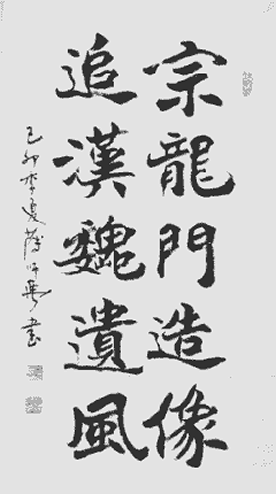 宗龍門造像
追漢魏遺風
己卯季夏書